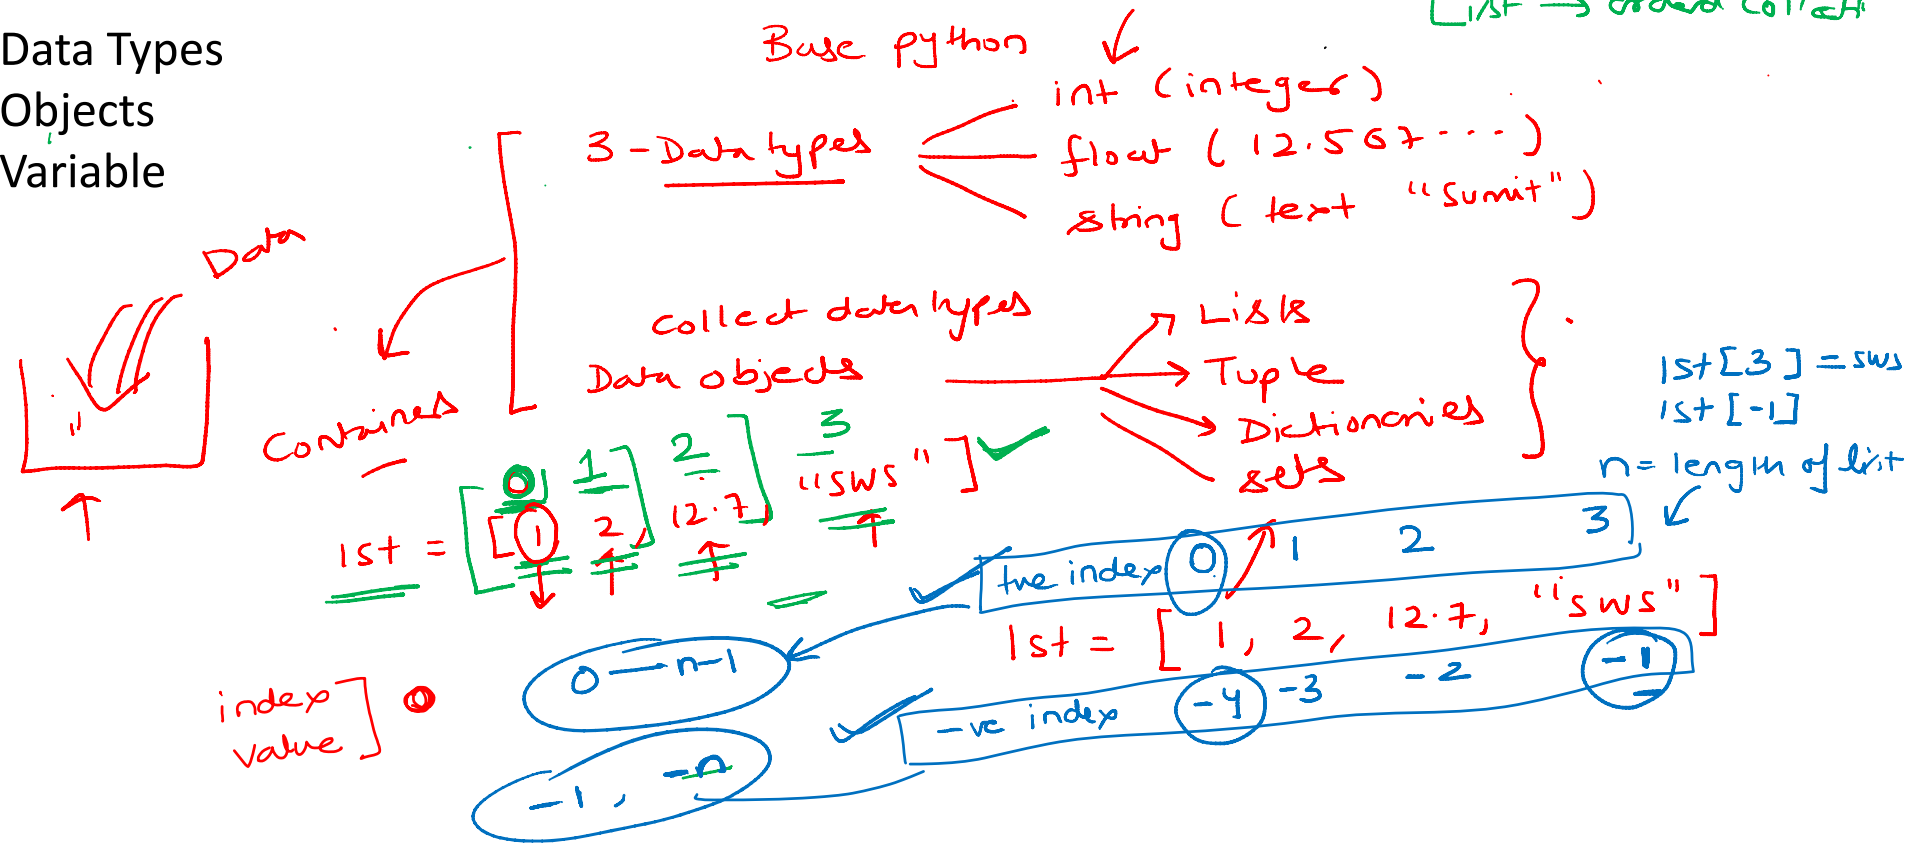 List → ordered collecti
Data Types
Objects
Variable
Base python
3 - Data types
int (integer)
float (12.567...)
string (text "sumit")
Data
Containers
Collect data types
Data objects
Lists
Tuple
Dictionaries
sets
lst[3] = sws
lst[-1]
n = length of list
0 1 2 3
lst = [1, 2, 12.7, "sws"]
+ve index 0 1 2 3
lst = [1, 2, 12.7, "sws"]
-ve index -4 -3 -2 -1
0 — n-1
-1, -n
index
value
0